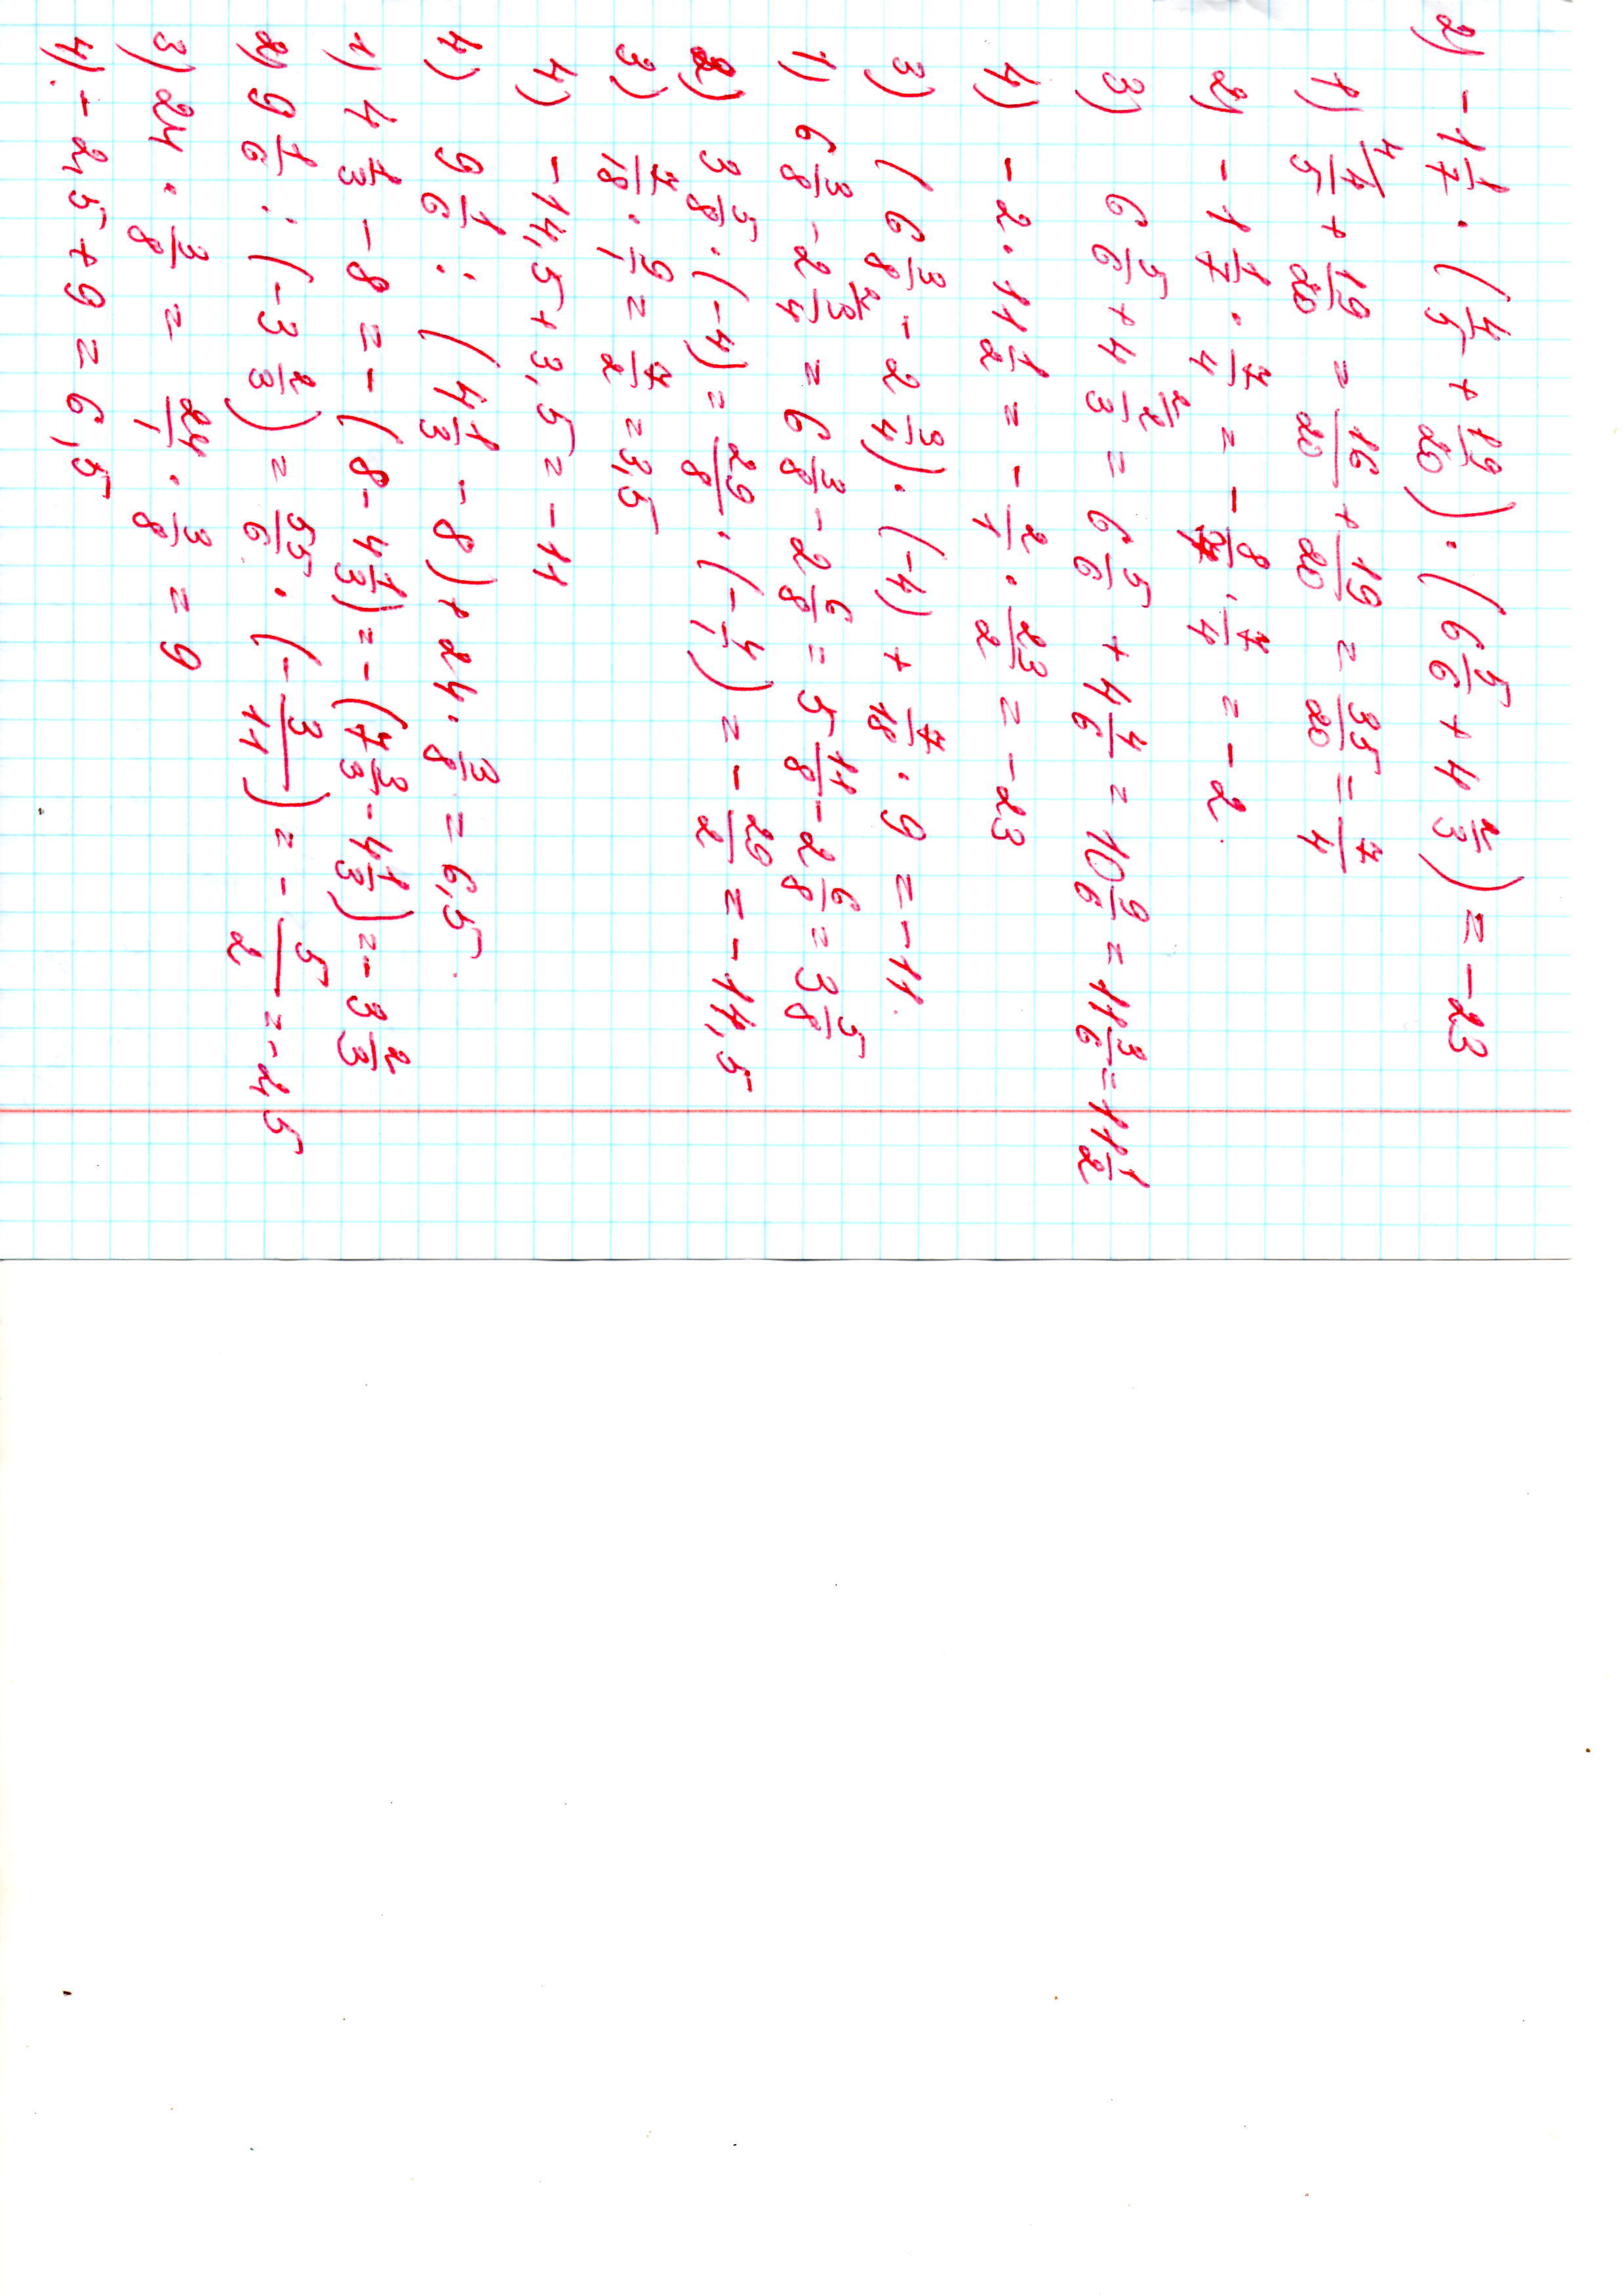 2) -1 1/7 · (4/5 + 19/20) · (6 5/6 + 4 2/3) = -23
1) 4/5 + 19/20 = 16/20 + 19/20 = 35/20 = 7/4
2) -1 1/7 · 7/4 = -8/7 · 7/4 = -2.
3) 6 5/6 + 4 2/3 = 6 5/6 + 4 4/6 = 10 9/6 = 11 3/6 = 11 1/2
4) -2 · 11 1/2 = -2/1 · 23/2 = -23
3) (6 3/8 - 2 3/4) · (-4) + 7/18 · 9 = -11.
1) 6 3/8 - 2 3/4 = 6 3/8 - 2 6/8 = 5 11/8 - 2 6/8 = 3 5/8
2) 3 5/8 · (-4) = 29/8 · (-4/1) = -29/2 = -14,5
3) 7/18 · 9/1 = 7/2 = 3,5
4) -14,5 + 3,5 = -11
4) 9 1/6 : (4 1/3 - 8) + 24 · 3/8 = 6,5.
1) 4 1/3 - 8 = -(8 - 4 1/3) = -(7 3/3 - 4 1/3) = -3 2/3
2) 9 1/6 : (-3 2/3) = 55/6 · (-3/11) = -5/2 = -2,5
3) 24 · 3/8 = 24/1 · 3/8 = 9
4). -2,5 + 9 = 6,5